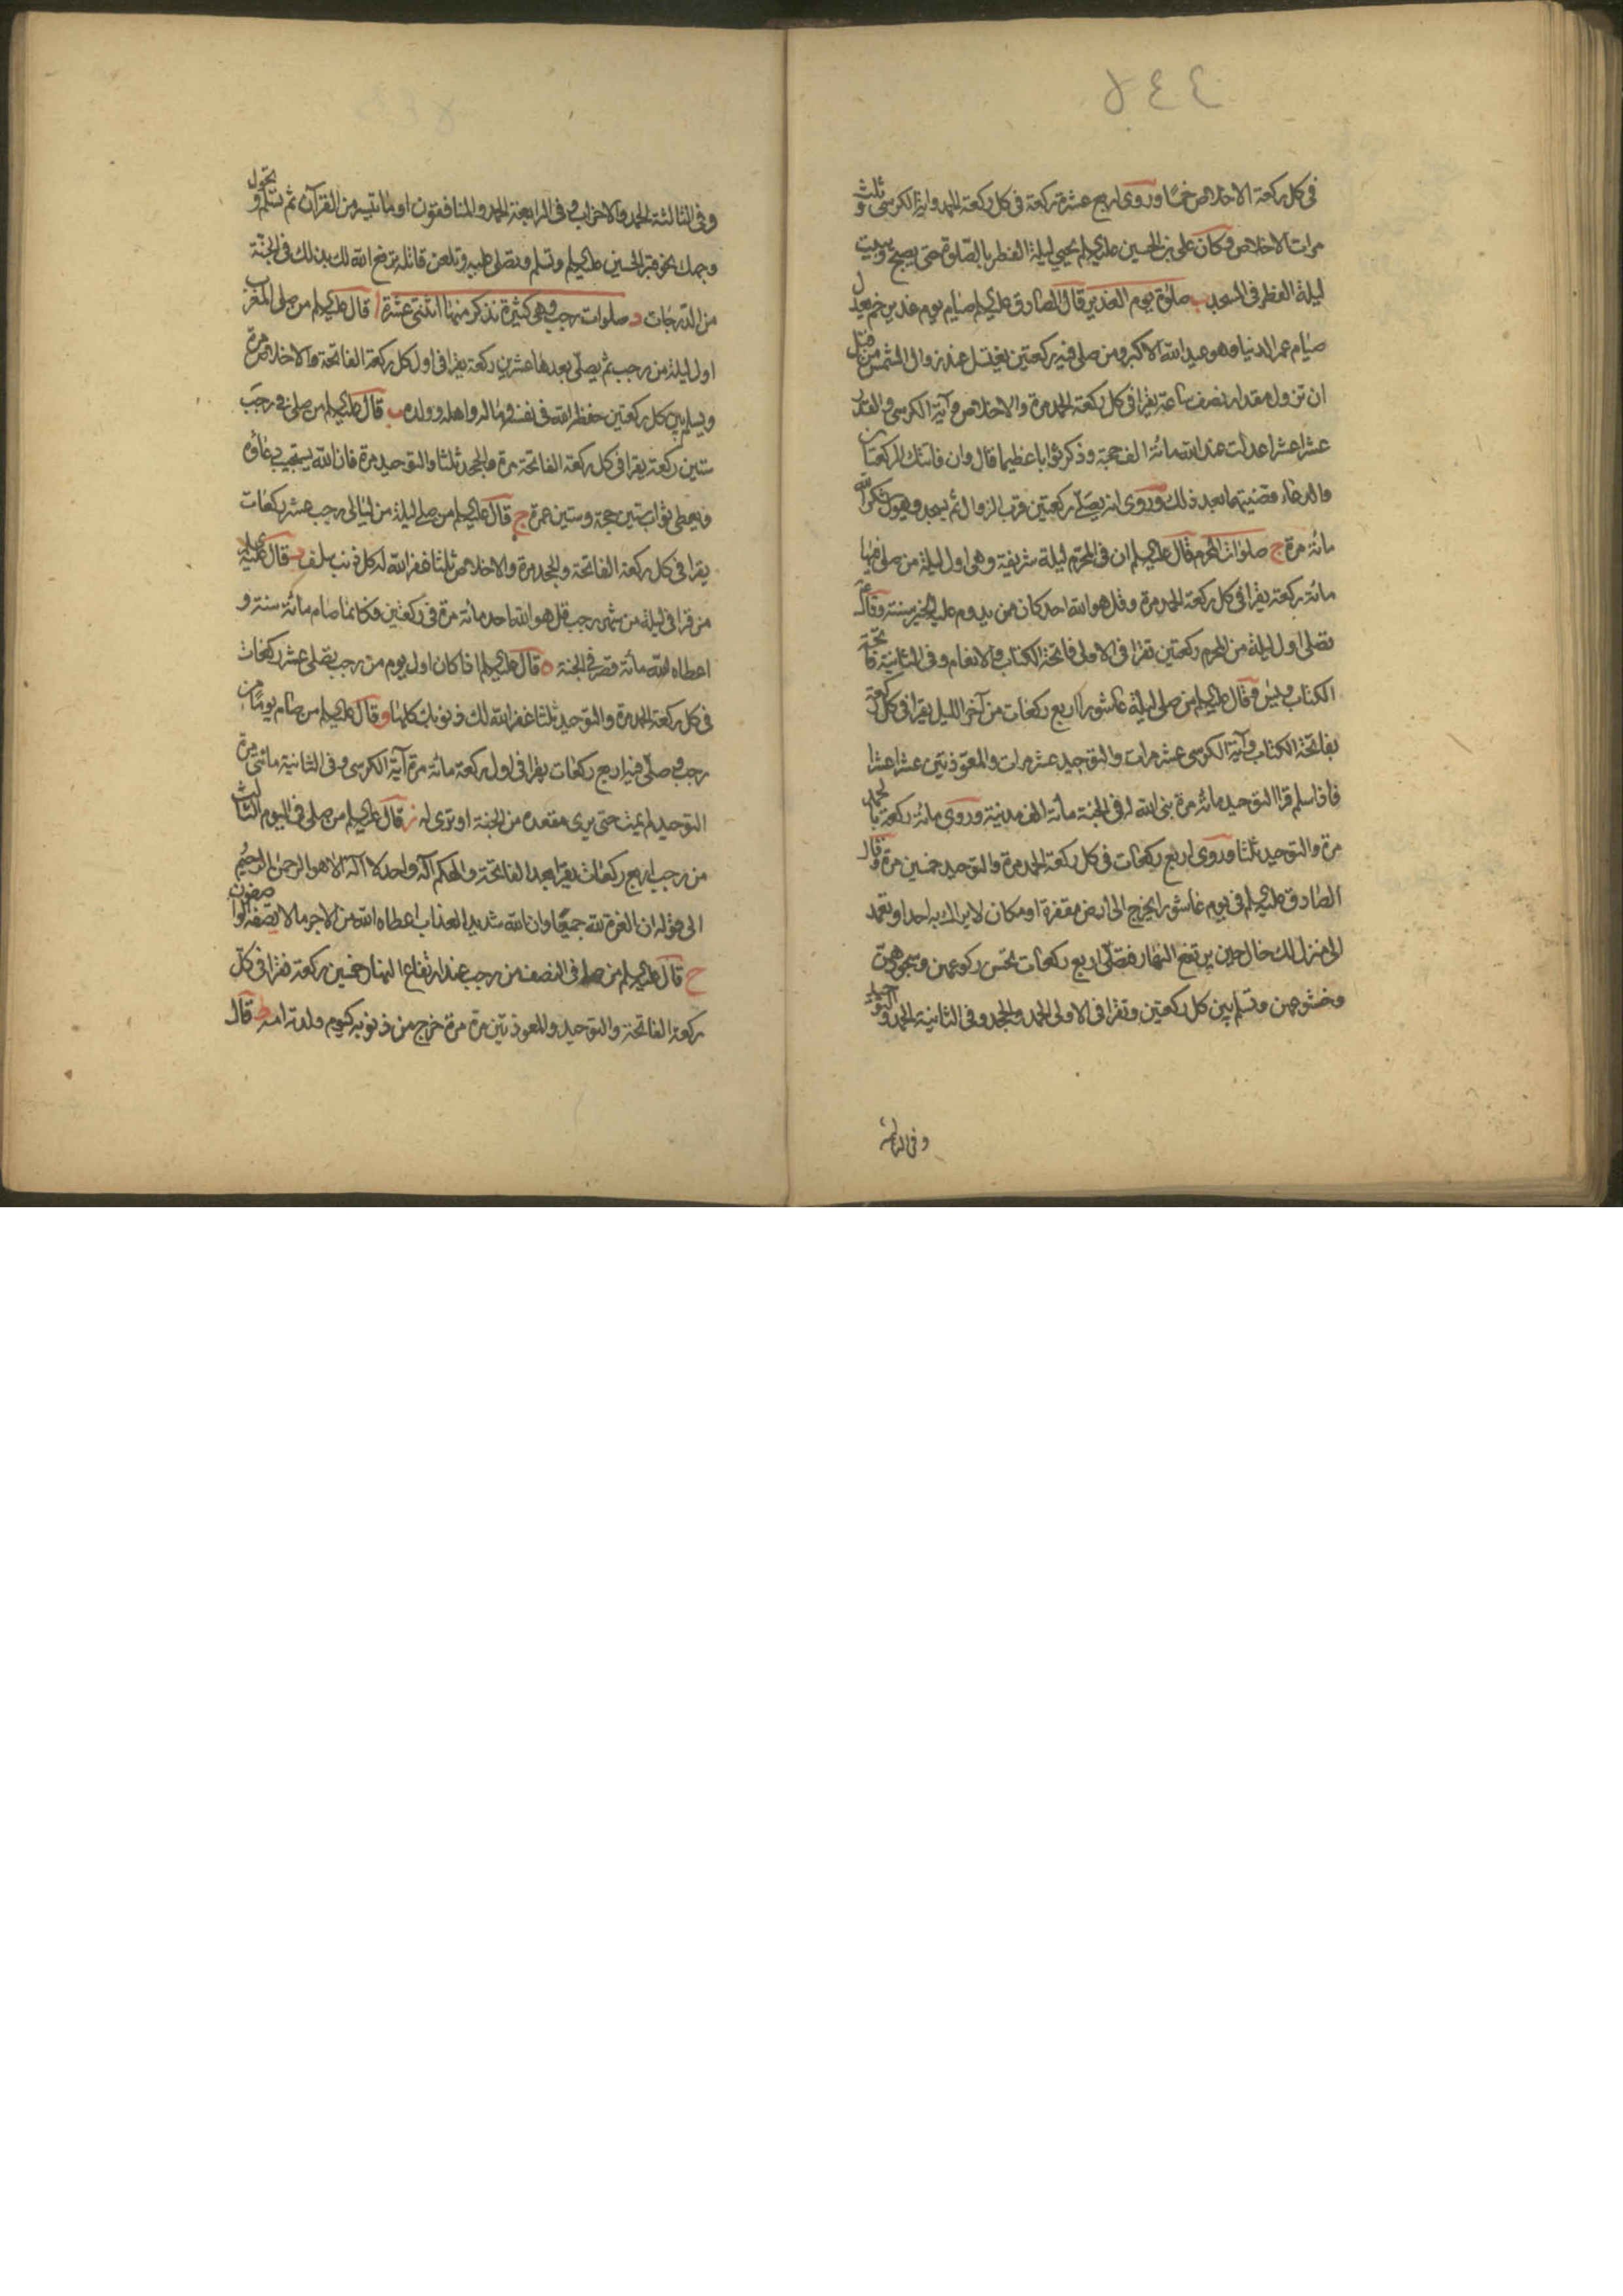 ٤٤٨
في كل ركعة الاخلاص خمسا وروى اربع عشرة ركعة في كل ركعة الحمد واية الكرسي وثلث
مرات الاخلاص وكان علي بن الحسين عليه السلم يحيي ليلة الفطر بالصلوة حتى يصبح ويبيت
ليلة الفطر في المسجد ب صلوة يوم الغدير قال الصادق عليه السلم صيام يوم غدير خم يعدل
صيام عمر الدنيا وهو عيد الله الاكبر ومن صلى فيه ركعتين يغتسل عند زوال الشمس من قبل
ان تزول مقدار نصف ساعة يقرا في كل ركعة الحمد مرة والاخلاص وآية الكرسي والقدر
عشرا عشرا عدلت عند الله مائة الف حجة وذكر ثوابا عظيما قال وان فاتتك الركعتان
والدعاء قضيتهما بعد ذلك وروى انه يصلي ركعتين قرب الزوال ثم يسجد ويقول شكرا لله
مائة مرة ج صلوات المحرم قال عليه السلم ان في المحرم ليلة شريفة وهي اول ليلة من صلى فيها
مائة ركعة يقرا في كل ركعة الحمد مرة وقل هو الله احد كان ممن يدوم عليه الخير سنته وقال
تصلي اول ليلة من المحرم ركعتين تقرا في الاولى فاتحة الكتاب والانعام وفي الثانية فاتحة
الكتاب ويس وقال عليه السلم من صلى ليلة عاشورا اربع ركعات من آخر الليل يقرا في كل ركعة
بفاتحة الكتاب وآية الكرسي عشر مرات والتوحيد عشر مرات والمعوذتين عشرا عشرا
فاذا سلم قرا التوحيد مائة مرة بنى الله له في الجنة مائة الف مدينة وروى مائة ركعة بالحمد
مرة والتوحيد ثلثا وروى اربع ركعات في كل ركعة الحمد مرة والتوحيد خمسين مرة وقال
الصادق عليه السلم في يوم عاشورا يخرج الى ارض مقفرة او مكان لا يراك به احد او تعمد
الى منزل لك خال حين يرتفع النهار فصلى اربع ركعات تحسن ركوعهن وسجودهن
وخشوعهن وتسلم بين كل ركعتين وتقرا في الاولى الحمد والجحد وفي الثانية الحمد والتوحيد
وفي الثالثة
وفي الثالثة الحمد والاحزاب وفي الرابعة الحمد والمنافقون او ما تيسر من القرآن ثم تسلم وتحول
وجهك نحو قبر الحسين عليه السلم وتسلم وتصلى عليه وتلعن قاتله يرفع الله لك بذلك في الجنة
من الدرجات د صلوات رجب وهي كثيرة نذكر منها اثنتي عشرة ا قال عليه السلم من صلى المغرب
اول ليلة من رجب ثم يصلي بعدها عشرين ركعة يقرا في اول كل ركعة الفاتحة والاخلاص مرة
ويسلم بين كل ركعتين حفظ الله في نفسه وماله واهله وولده ب قال عليه السلم من صلى في رجب
ستين ركعة يقرا في كل ركعة الفاتحة مرة والجحد ثلثا والتوحيد مرة فان الله يستجيب دعاؤه
ويعطى ثواب ستين حجة وستين عمرة ج قال عليه السلم من صلى ليلة من ليالي رجب عشر ركعات
يقرا في كل ركعة الفاتحة والجحد مرة والاخلاص ثلثا غفر الله له كل ذنب سلف د قال عليه السلم
من قرا في ليلة من شهر رجب قل هو الله احد مائة مرة في ركعتين فكانما صام مائة سنة و
اعطاه الله مائة قصر في الجنة ه قال عليه السلم اذا كان اول يوم من رجب تصلى عشر ركعات
في كل ركعة الحمد مرة والتوحيد ثلثا غفر الله لك ذنوبك كلها و قال عليه السلم من صام يوما من
رجب وصلى فيه اربع ركعات يقرا في اول ركعة مائة مرة آية الكرسي وفي الثانية مائتي مرة
التوحيد لم يمت حتى يرى مقعده من الجنة او ترى له ز قال عليه السلم من صلى في اليوم الثالث
من رجب اربع ركعات يقرا بعد الفاتحة والهكم آله واحد لا اله الا هو الرحمن الرحيم
الى قوله ان القوة لله جميعا وان الله شديد العذاب اعطاه الله من الاجر ما لا يصفه الواصفون
ح قال عليه السلم من صلى في النصف من رجب عند ارتفاع النهار خمسين ركعة تقرا في كل
ركعة الفاتحة والتوحيد والمعوذتين مرة مرة خرج من ذنوبه كيوم ولدته امه ط قال